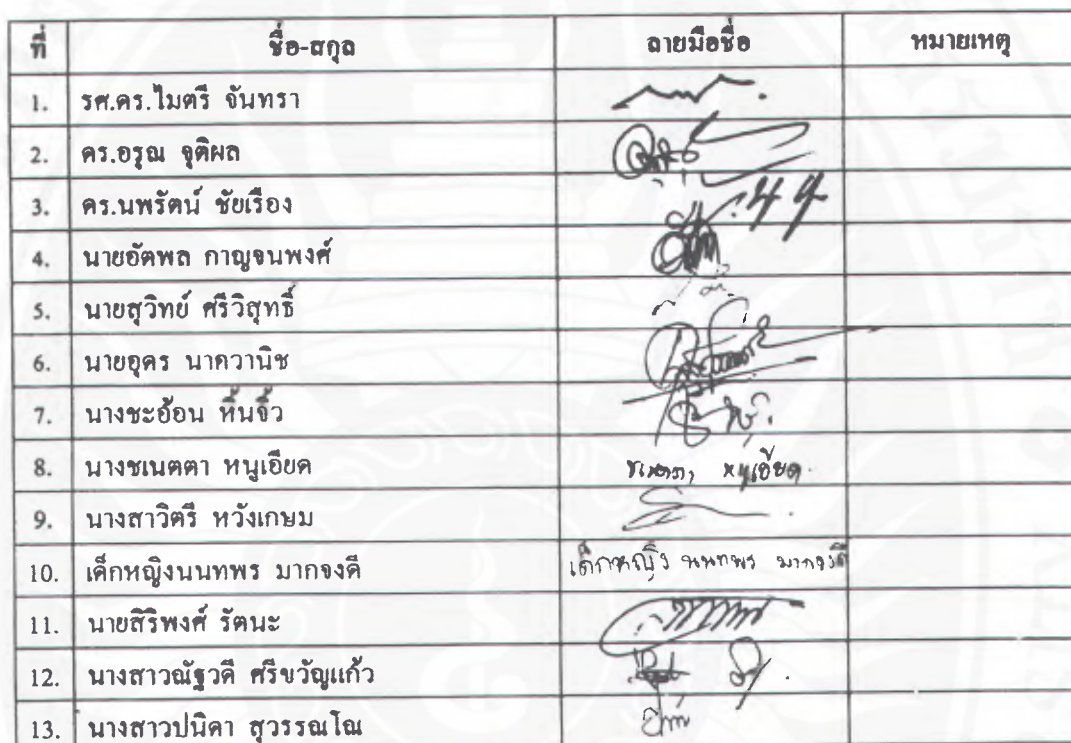 ที่ ชื่อ-สกุล ลายมือชื่อ หมายเหตุ
1. รศ.ดร.ไมตรี จันทรา
2. ดร.อรุณ จุติผล
3. ดร.นพรัตน์ ชัยเรือง
4. นายอัตพล กาญจนพงศ์
5. นายสุวิทย์ ศรีวิสุทธิ์
6. นายอุดร นาควานิช
7. นางชะอ้อน หิ้นจิ้ว
8. นางชเนตตา หนูเอียด ชเนตตา หนูเอียด
9. นางสาวิตรี หวังเกษม
10. เด็กหญิงนนทพร มากจงดี เด็กหญิง นนทพร มากจงดี
11. นายสิริพงศ์ รัตนะ
12. นางสาวณัฐวดี ศรีขวัญแก้ว
13. นางสาวปนิดา สุวรรณโณ